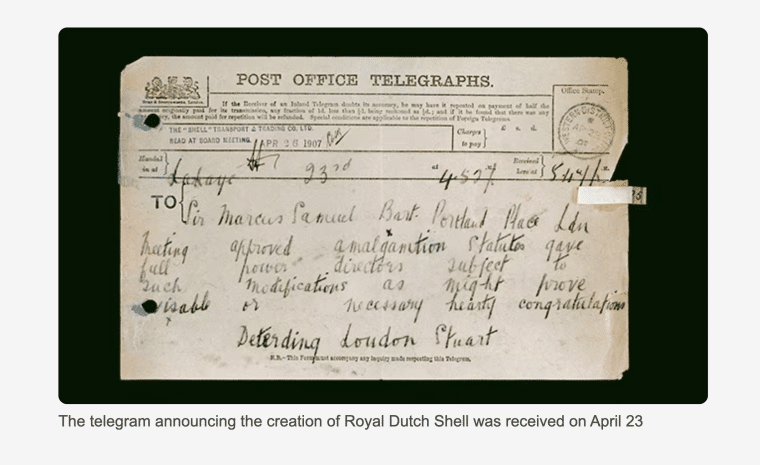 POST OFFICE TELEGRAPHS.
If the Receiver of an Inland Telegram doubts its accuracy, he may have it repeated on payment of half the
amount originally paid for its transmission, any fraction of 1d. less than ½d. being reckoned as ½d.; and if it be found that there was any
inaccuracy, the amount paid for repetition will be refunded. Special conditions are applicable to the repetition of Foreign Telegrams.
Office Stamp.
THE "SHELL" TRANSPORT & TRADING CO. LTD.
READ AT BOARD MEETING. APR 26 1907
Charges to pay £ s. d.
Handed in at LaHaye 23rd at 4.57 Received here at
TO Sir Marcus Samuel Bart. Portland Place Ldn
Meeting approved amalgamation Statutes gave
full power directors subject to
such modifications as might prove
visable or necessary hearty congratulations
Deterding Loudon Stuart
N.B.—This Form must accompany any inquiry made respecting this Telegram.
The telegram announcing the creation of Royal Dutch Shell was received on April 23